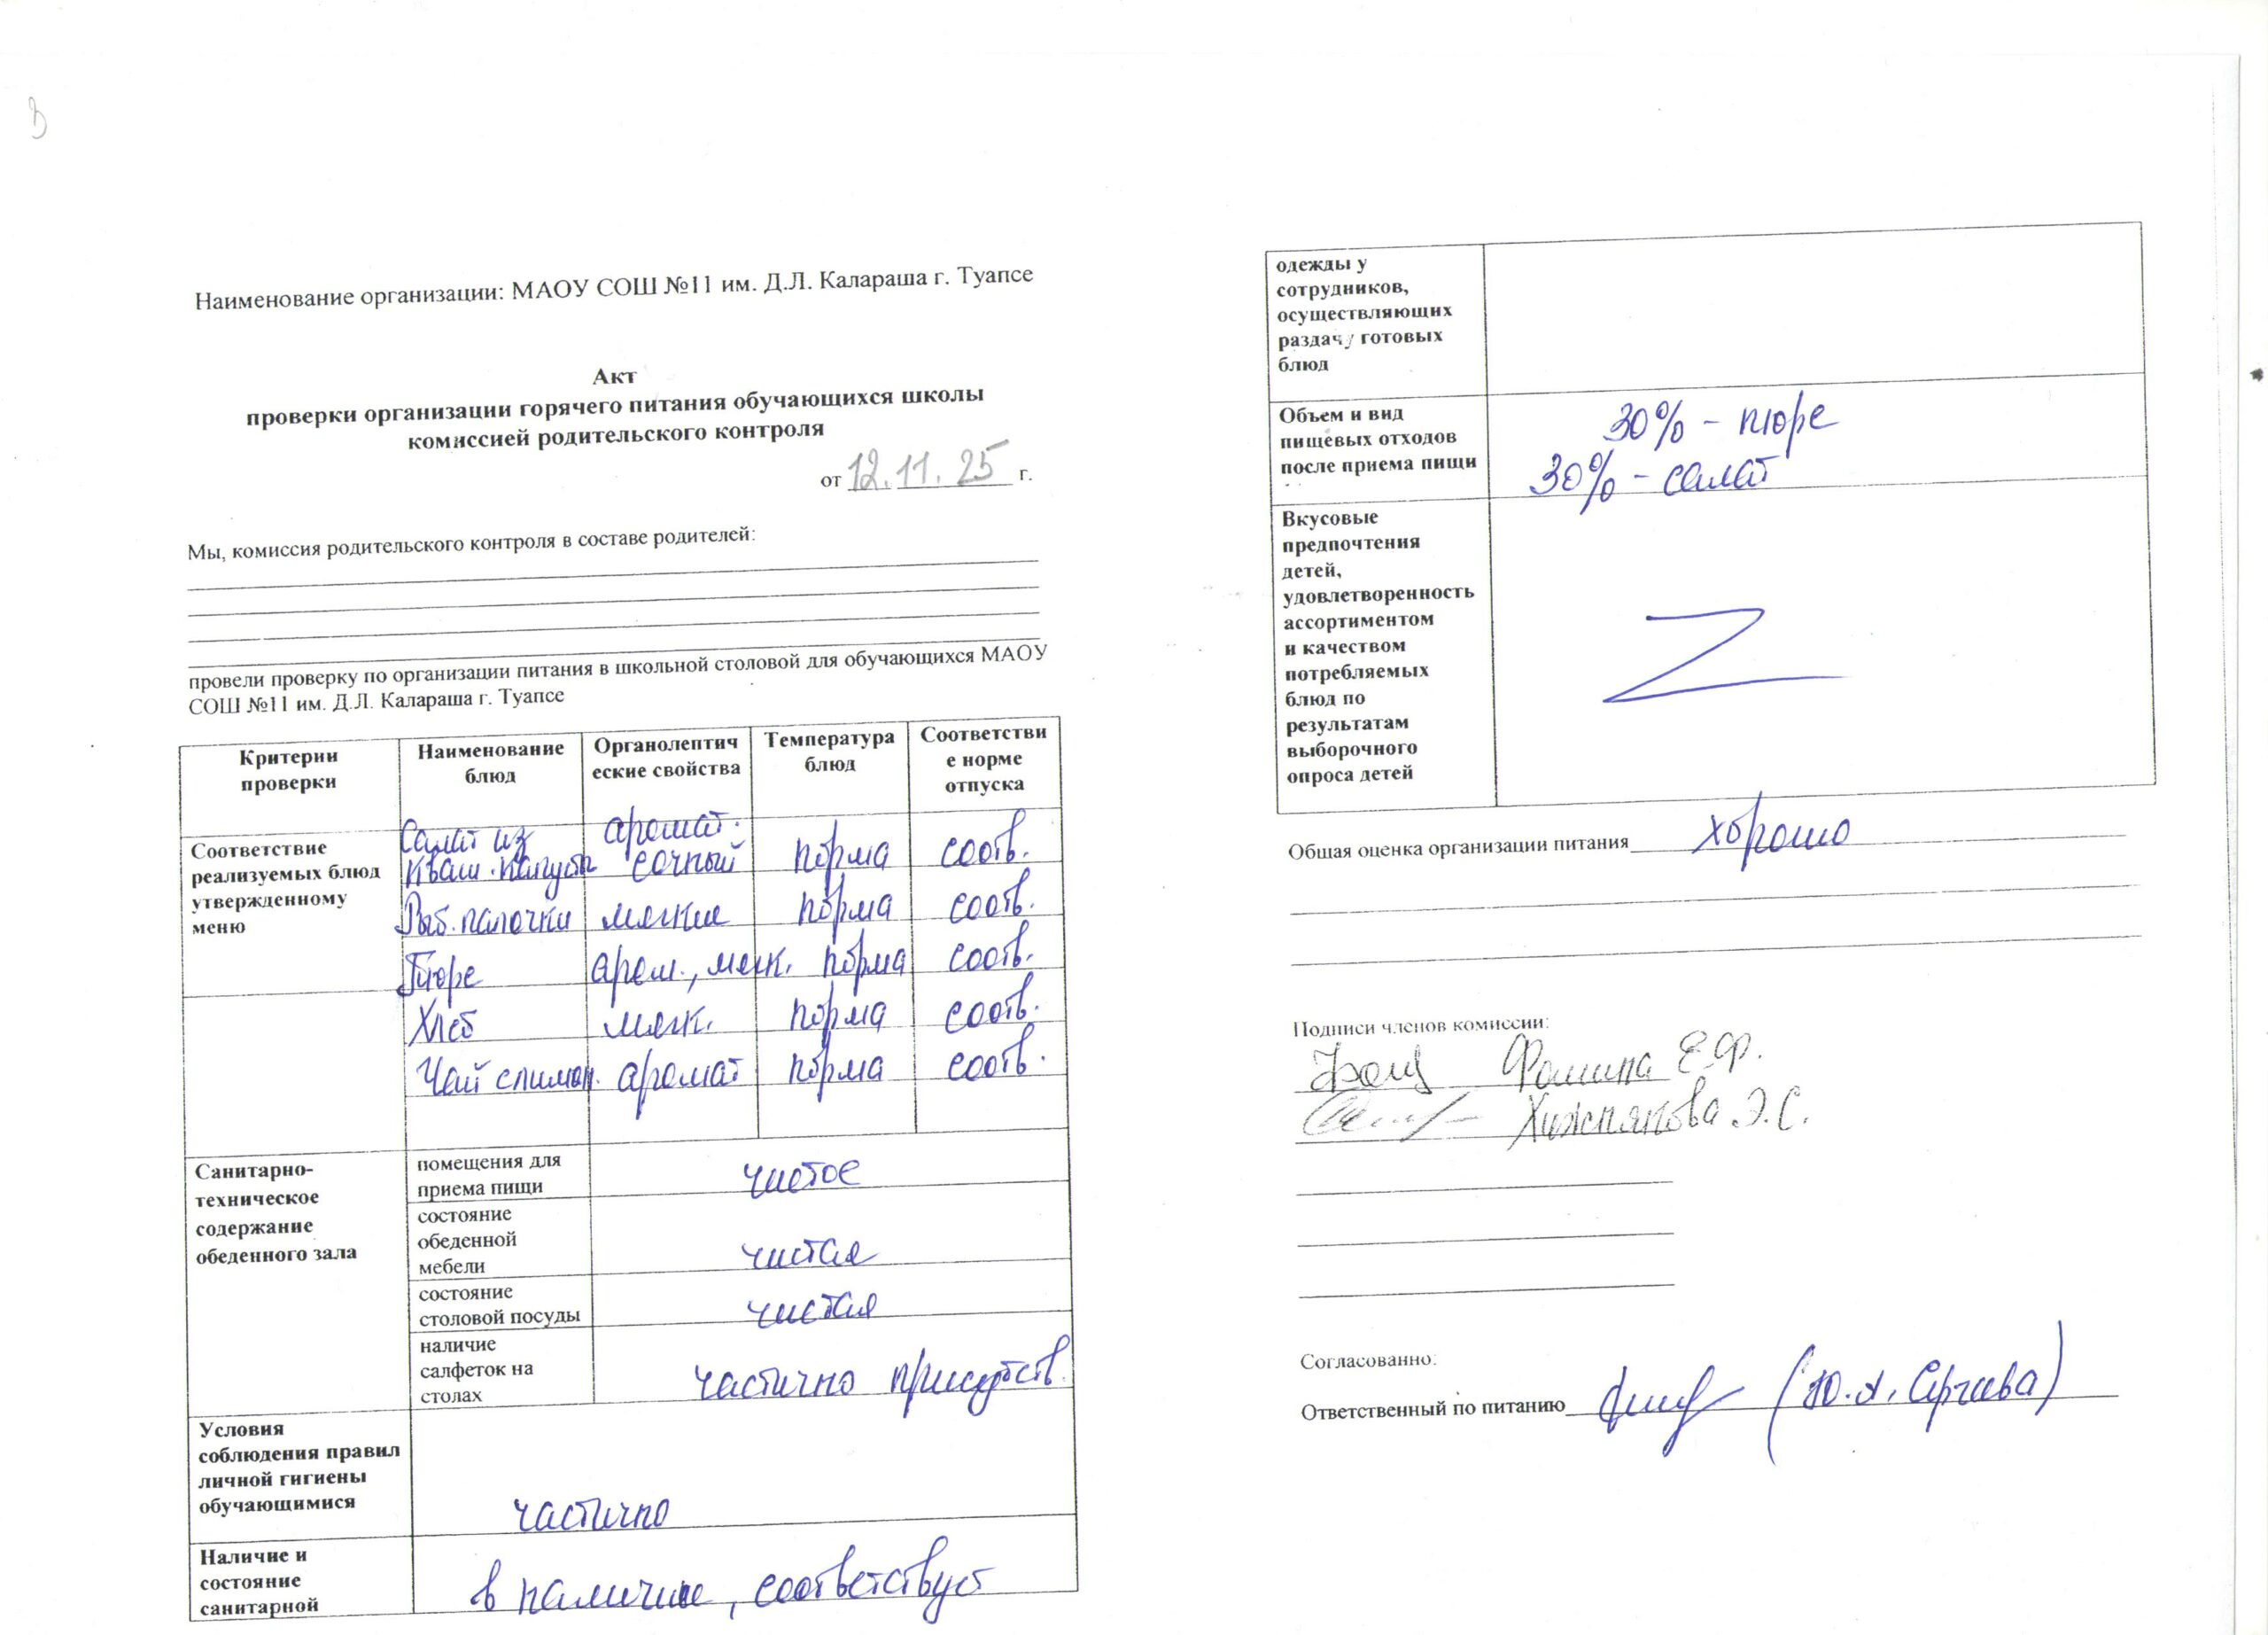 Наименование организации: МАОУ СОШ №11 им. Д.Л. Калараша г. Туапсе
Акт
проверки организации горячего питания обучающихся школы
комиссией родительского контроля
от 12.11.25 г.
Мы, комиссия родительского контроля в составе родителей:
провели проверку по организации питания в школьной столовой для обучающихся МАОУ
СОШ №11 им. Д.Л. Калараша г. Туапсе
Критерии проверки Наименование блюд Органолептические свойства Температура блюд Соответствие норме отпуска
Соответствие
реализуемых блюд
утвержденному
меню
Салат из кваш. капусты аромат. сочный норма соотв.
Рыб. палочки мягкие норма соотв.
Пюре аром., мягк. норма соотв.
Хлеб мягк. норма соотв.
Чай с лимон. аромат норма соотв.
Санитарно-
техническое
содержание
обеденного зала
помещения для
приема пищи чистое
состояние
обеденной
мебели чистая
состояние
столовой посуды чистая
наличие
салфеток на
столах частично присутств.
Условия
соблюдения правил
личной гигиены
обучающимися
частично
Наличие и
состояние
санитарной
в наличие, соответствует
одежды у
сотрудников,
осуществляющих
раздачу готовых
блюд
Объем и вид
пищевых отходов
после приема пищи
30% - пюре
30% - салат
Вкусовые
предпочтения
детей,
удовлетворенность
ассортиментом
и качеством
потребляемых
блюд по
результатам
выборочного
опроса детей
Общая оценка организации питания хорошо
Подписи членов комиссии:
Фомина Е.Ф.
Хижнякова Э.С.
Согласованно:
Ответственный по питанию (Ю.А. Сергеева)